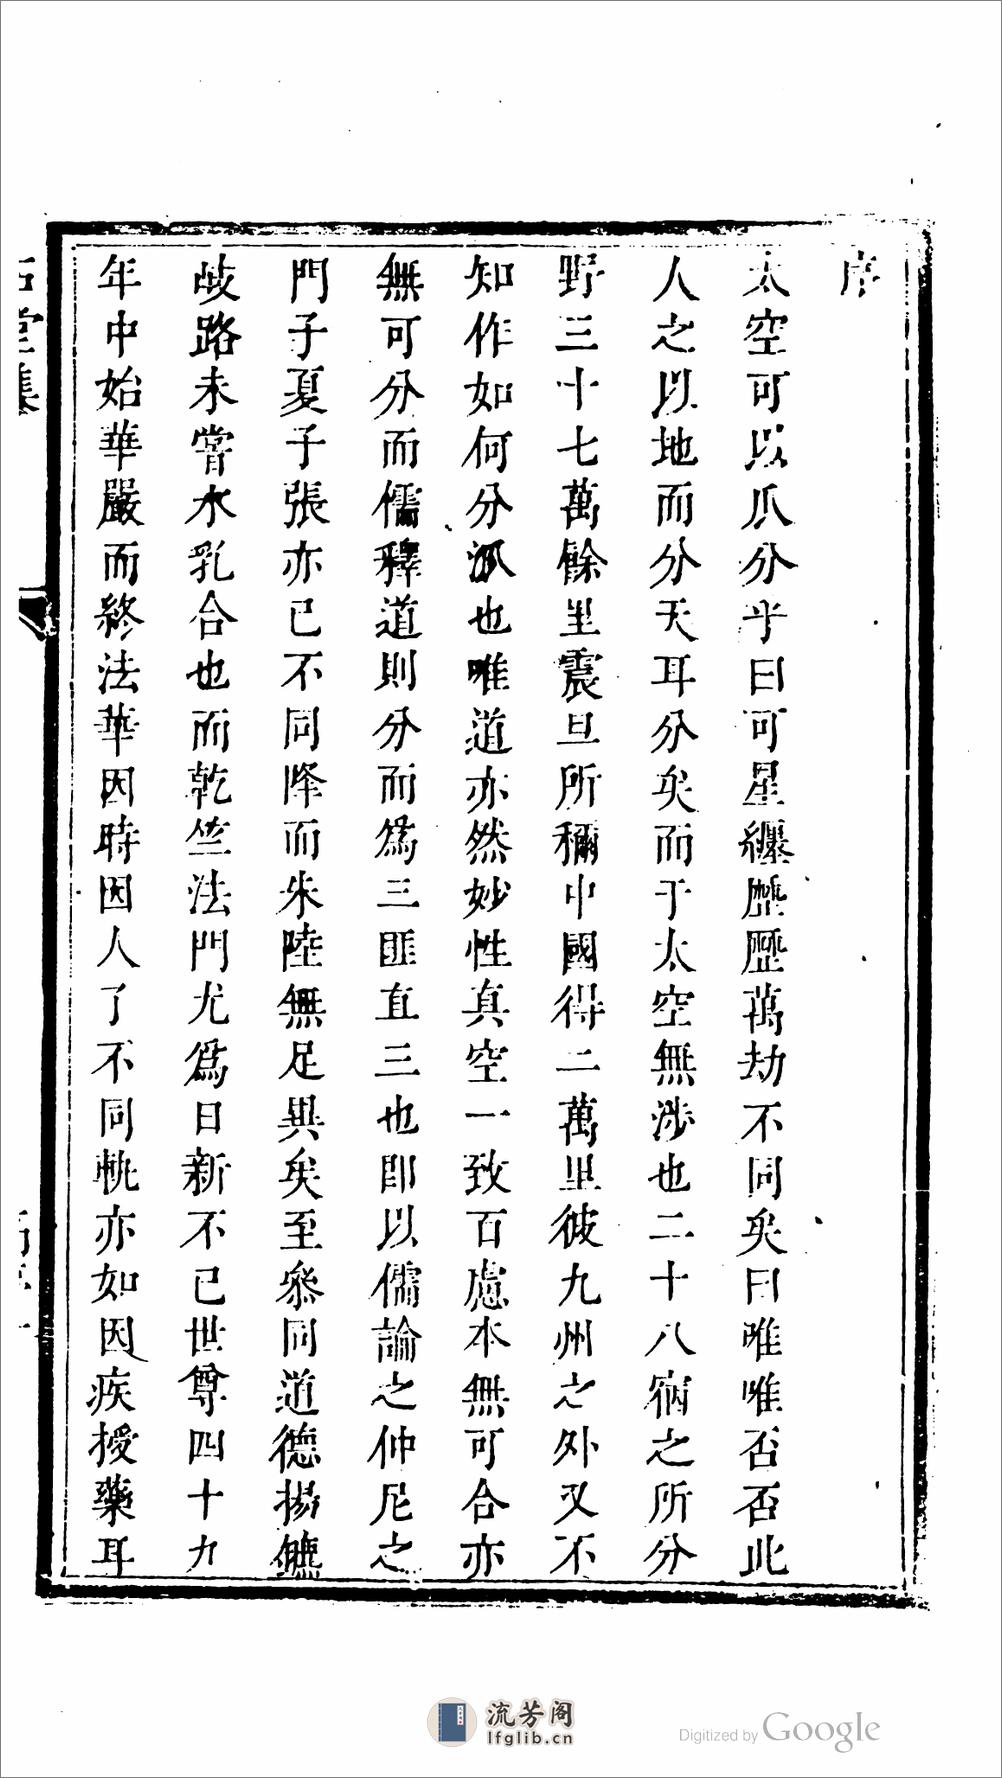 序
太空可以爪分乎曰可星纏歷歷萬劫不同矣曰唯唯否否此
人之以地而分天耳分矣而于太空無涉也二十八宿之所分
野三十七萬餘里震旦所稱中國得二萬里彼九州之外又不
知作如何分派也唯道亦然妙性真空一致百慮本無可合亦
無可分而儒釋道則分而爲三匪直三也即以儒論之仲尼之
門子夏子張亦已不同降而朱陸無足異矣至叅同道德揚鑣
歧路未嘗水乳合也而乾竺法門尤爲日新不已世尊四十九
年中始華嚴而終法華因時因人了不同軌亦如因疾授藥耳
石堂集
流芳阁
lfglib.cn
Digitized by Google